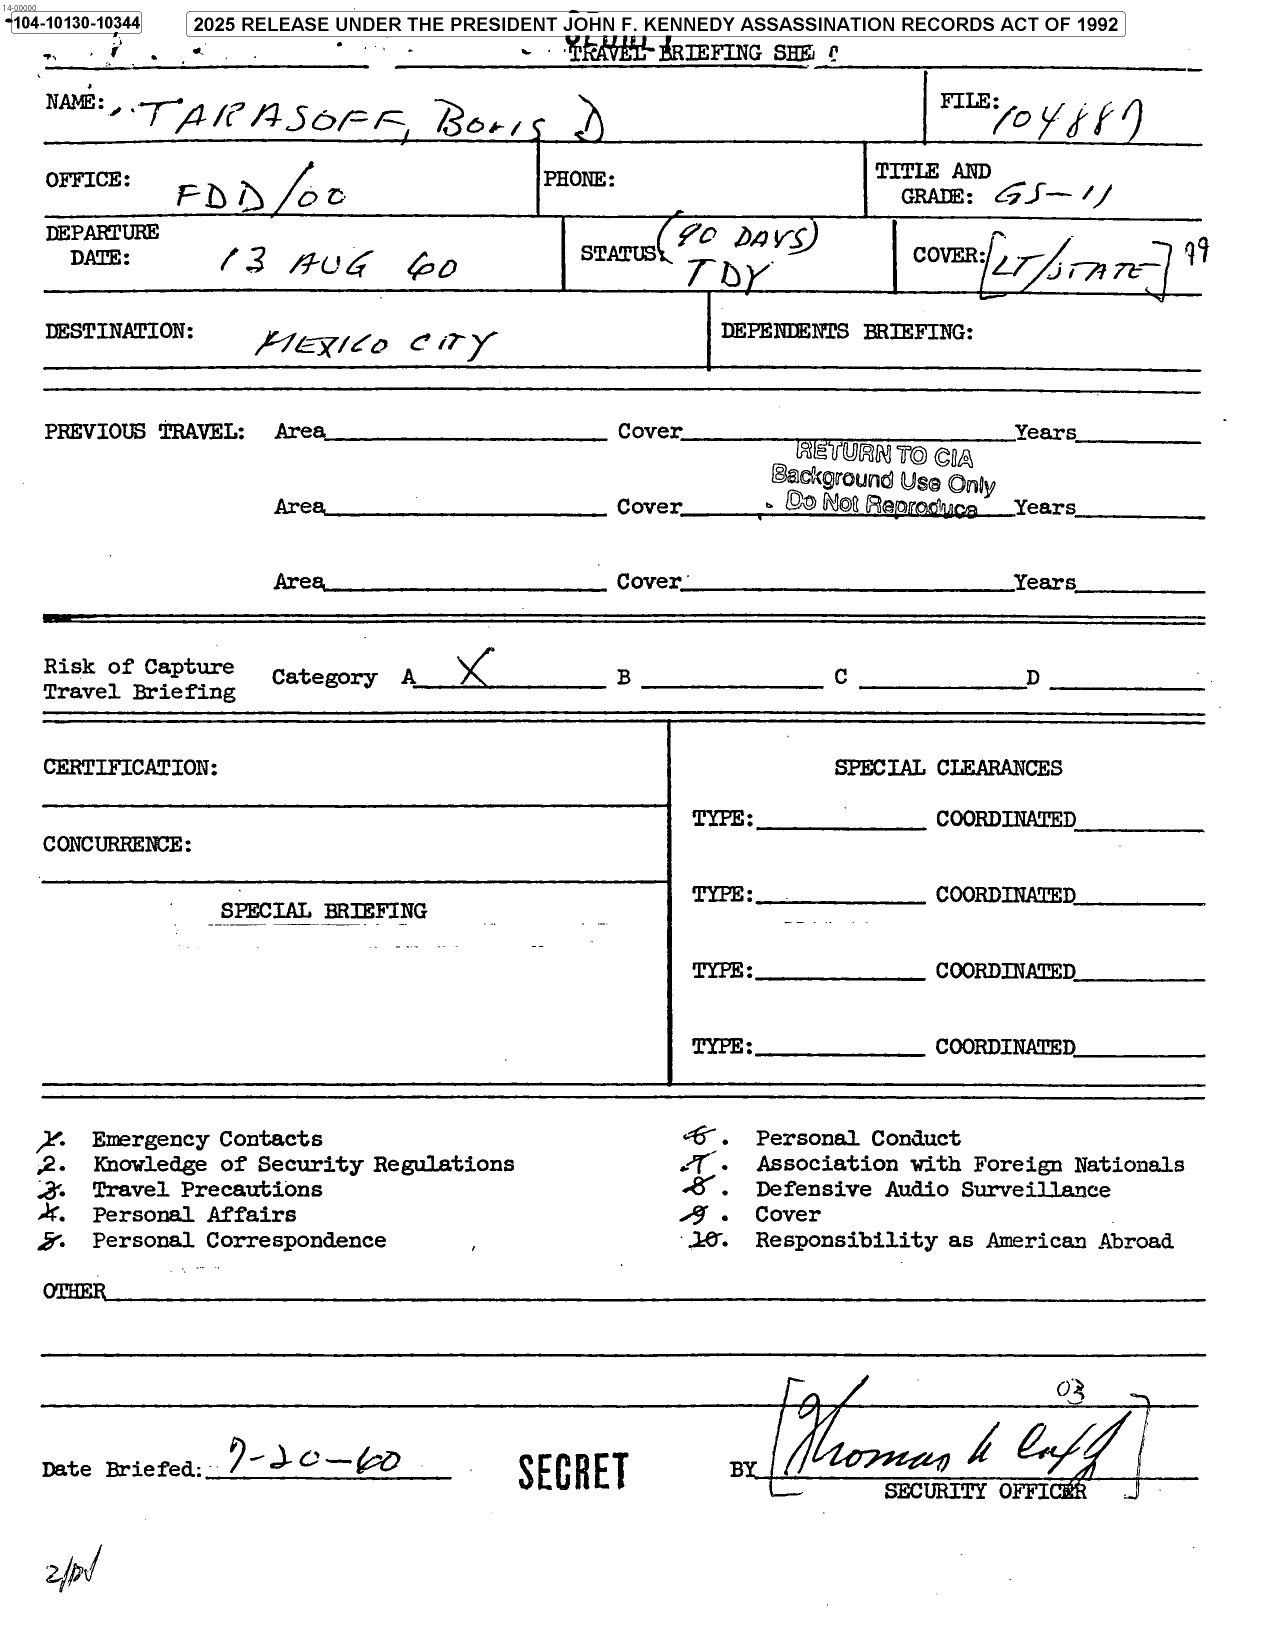 14-00000
104-10130-10344
2025 RELEASE UNDER THE PRESIDENT JOHN F. KENNEDY ASSASSINATION RECORDS ACT OF 1992
TRAVEL BRIEFING SHE
NAME: TARASOFF, Boris D
FILE: 104887
OFFICE: FDD/OO
PHONE:
TITLE AND
GRADE: GS-11
DEPARTURE
DATE: 13 AUG 60
STATUS (90 DAYS)
TDY
COVER: [LT/STATE] 99
DESTINATION: MEXICO CITY
DEPENDENTS BRIEFING:
PREVIOUS TRAVEL: Area Cover Years
RETURN TO CIA
Background Use Only
Do Not Reproduce
Area Cover Years
Area Cover Years
Risk of Capture
Travel Briefing
Category A X B C D
CERTIFICATION:
CONCURRENCE:
SPECIAL BRIEFING
SPECIAL CLEARANCES
TYPE: COORDINATED
TYPE: COORDINATED
TYPE: COORDINATED
TYPE: COORDINATED
1. Emergency Contacts
2. Knowledge of Security Regulations
3. Travel Precautions
4. Personal Affairs
5. Personal Correspondence
6. Personal Conduct
7. Association with Foreign Nationals
8. Defensive Audio Surveillance
9. Cover
10. Responsibility as American Abroad
OTHER
03
Date Briefed: 7-20-60
SECRET
BY [Thomas
SECURITY OFFICER ]